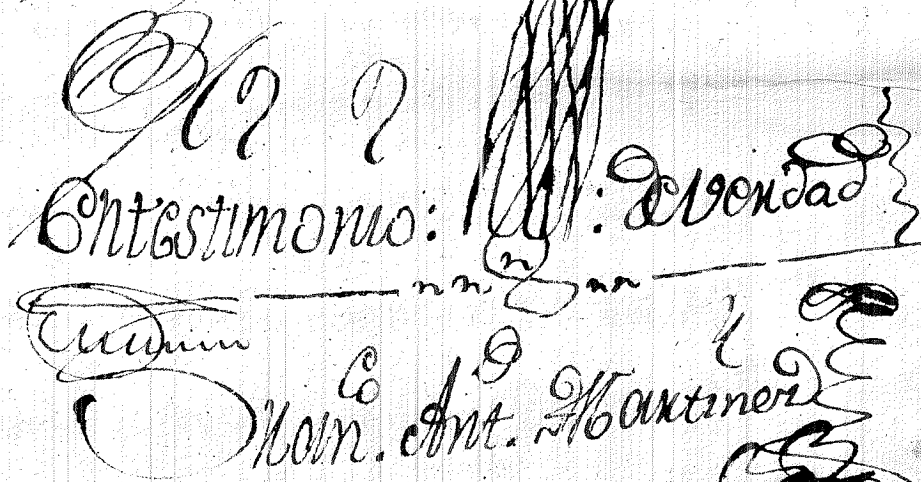 En testimonio: : de Verdad
Fran.co Ant.o Martinez